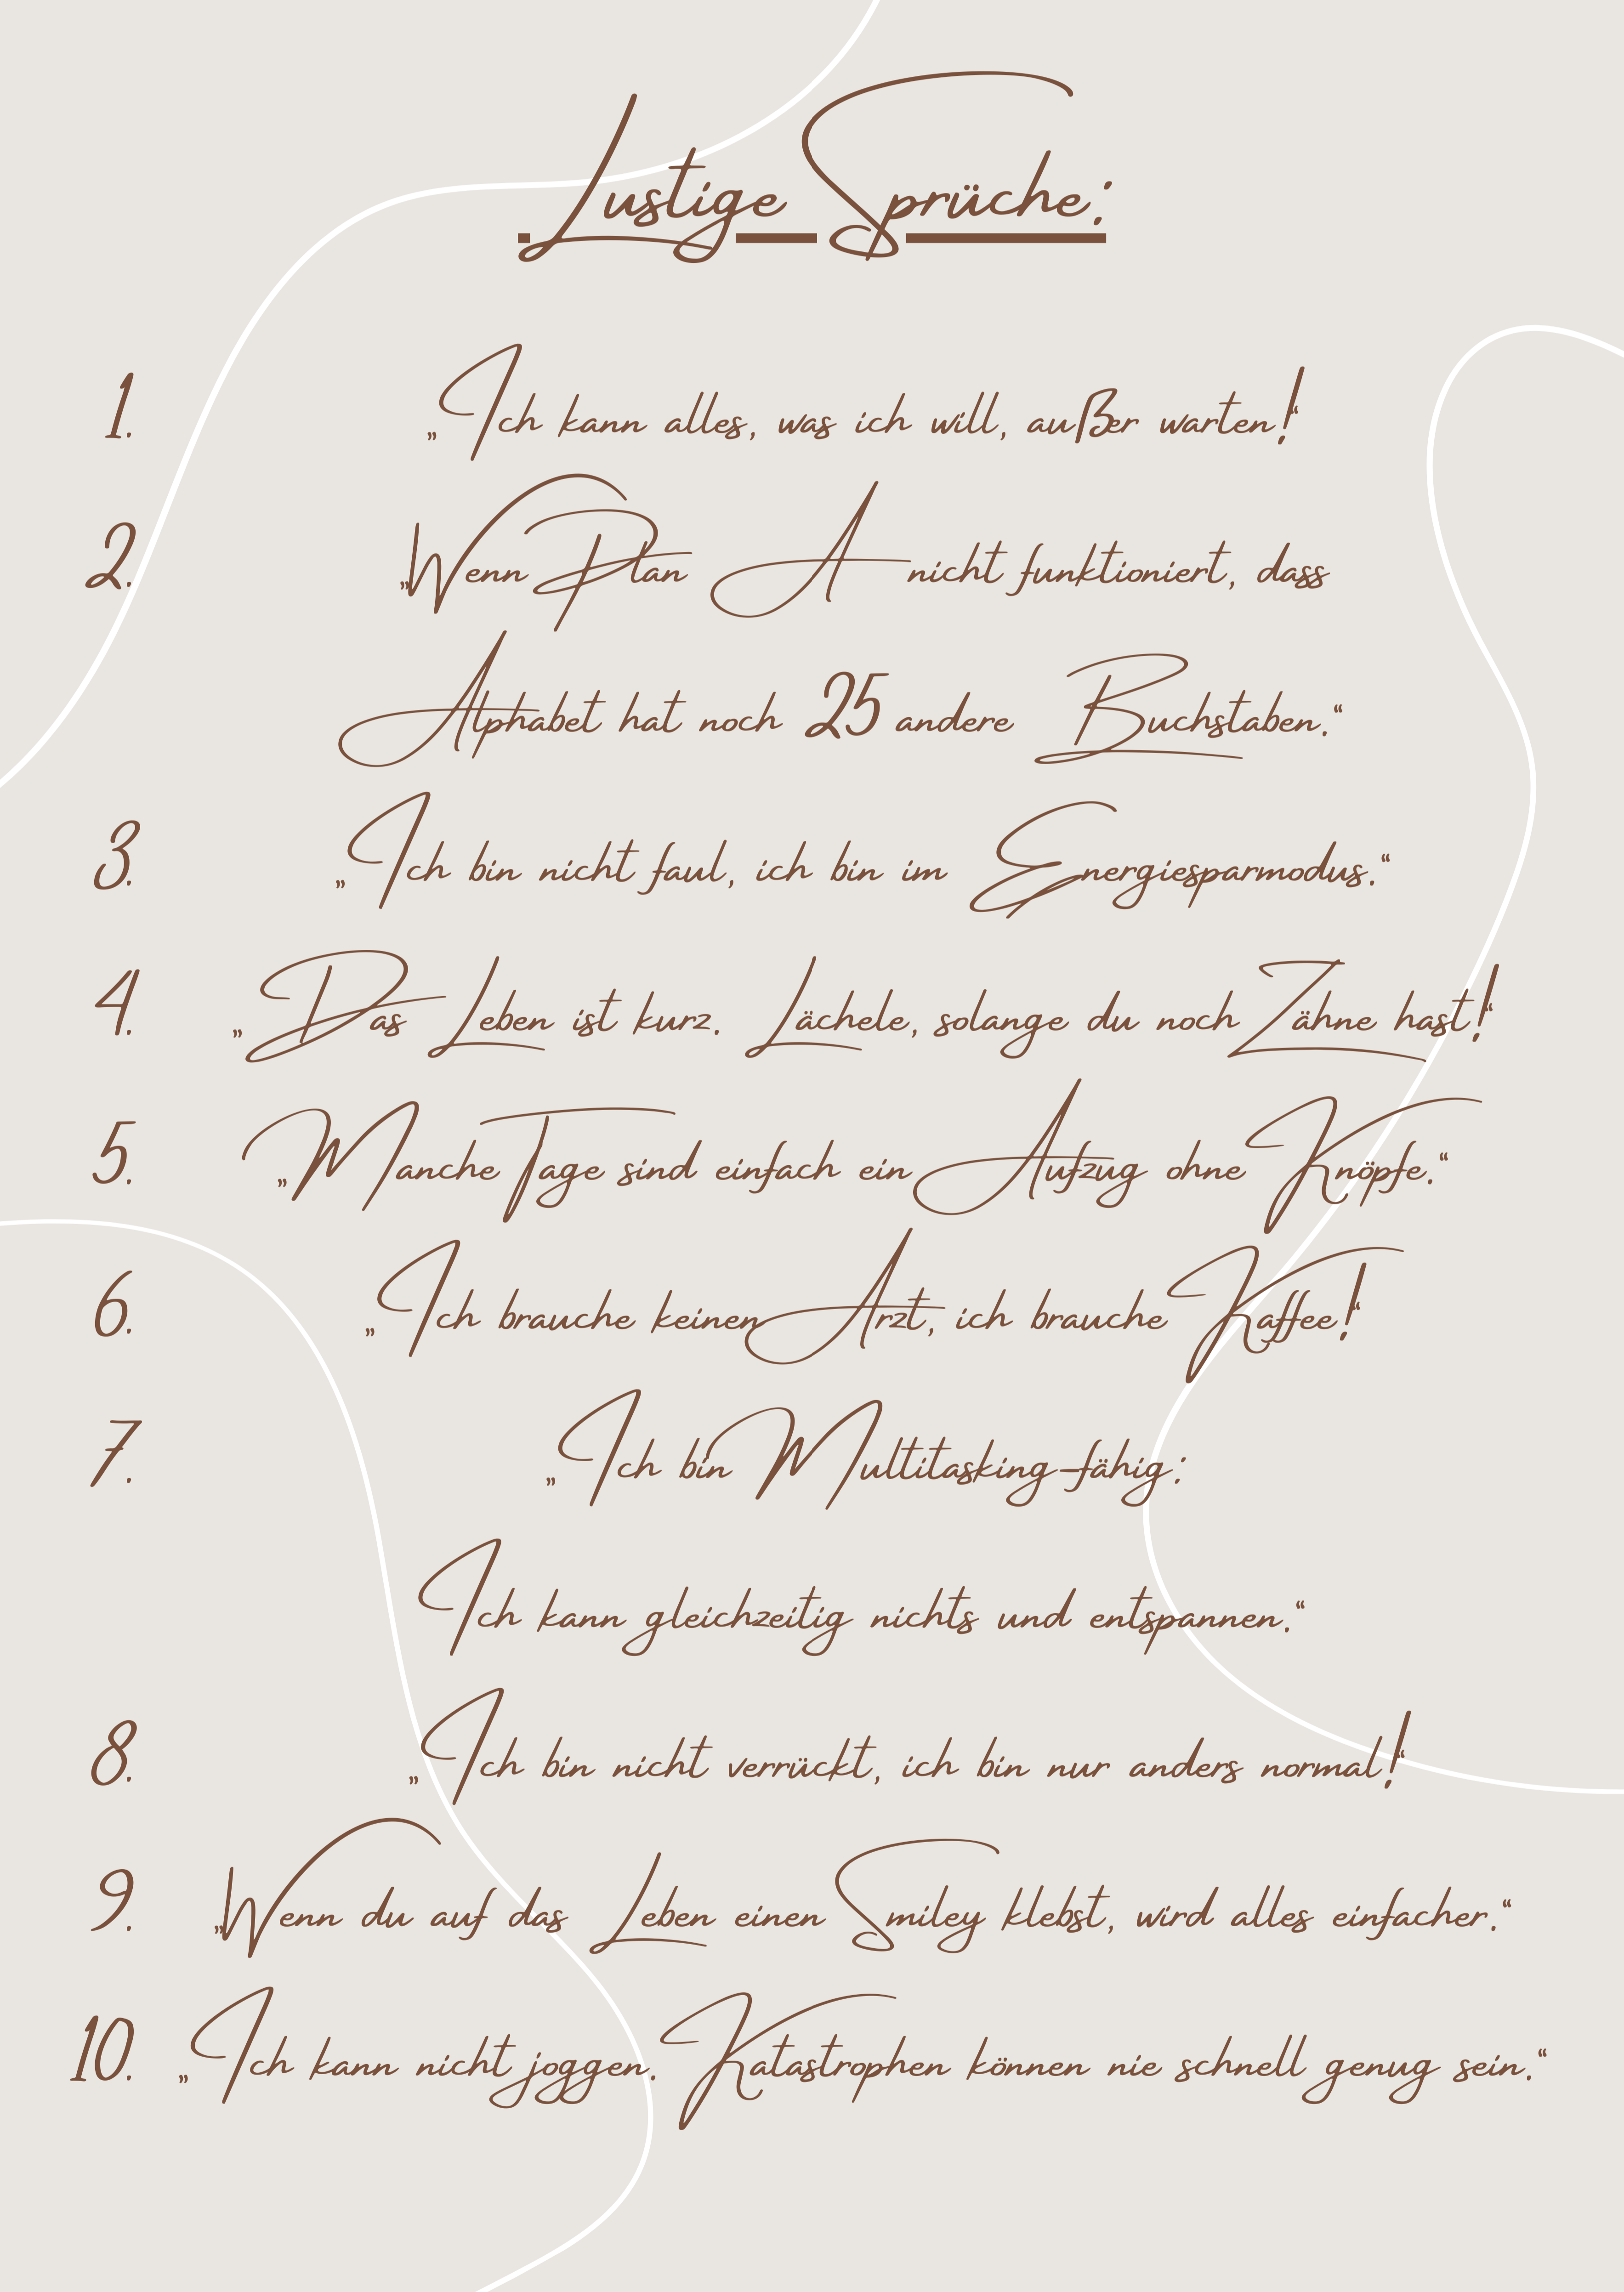 Lustige Sprüche:
1. „Ich kann alles, was ich will, außer warten!“
2. „Wenn Plan A nicht funktioniert, dass
Alphabet hat noch 25 andere Buchstaben.“
3. „Ich bin nicht faul, ich bin im Energiesparmodus.“
4. „Das Leben ist kurz. Lächele, solange du noch Zähne hast!“
5. „Manche Tage sind einfach ein Aufzug ohne Knöpfe.“
6. „Ich brauche keinen Arzt, ich brauche Kaffee!“
7. „Ich bin Multitasking-fähig:
Ich kann gleichzeitig nichts und entspannen.“
8. „Ich bin nicht verrückt, ich bin nur anders normal!“
9. „Wenn du auf das Leben einen Smiley klebst, wird alles einfacher.“
10. „Ich kann nicht joggen. Katastrophen können nie schnell genug sein.“